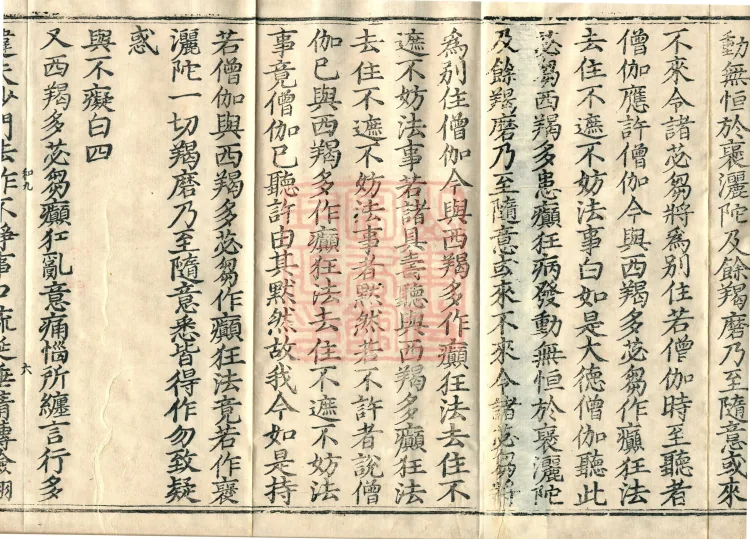 動無恒於褒灑陀及餘羯磨乃至隨意或來
不來令諸苾芻將為別住若僧伽時至聽者
僧伽應許僧伽今與西羯多苾芻作癲狂法
去住不遮不妨法事白如是大德僧伽聽此
苾芻西羯多患癲狂病發動無恒於褒灑陀
及餘羯磨乃至隨意或來不來令諸苾芻將
為別住僧伽今與西羯多作癲狂法去住不
遮不妨法事若諸具壽聽與西羯多癲狂法
去住不遮不妨法事者默然若不許者說僧
伽已與西羯多作癲狂法去住不遮不妨法
事竟僧伽已聽許由其默然故我今如是持
若僧伽與西羯多苾芻作癲狂法竟若作褒
灑陀一切羯磨乃至隨意悉皆得作勿致疑
惑
與不癡白四
又西羯多苾芻癲狂亂意痛惱所纏言行多
和九
六
違失沙門法作不淨事口流涎垂睛轉瞼翻